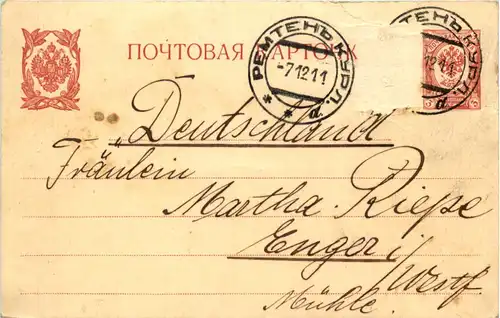 ПОЧТОВАЯ КАРТОЧКА
РЕМТЕНЪ КУРЛ.
-7 12 11
d.
„Deutschland
Fräulein
Martha Riepe
Enger i/
Westf.
Mühle.